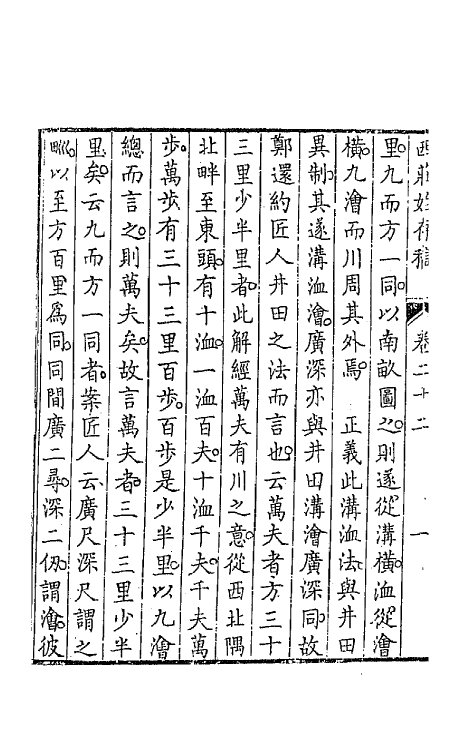 西莊始存稿 卷二十二 一
里九而方一同以南畝圖之則遂從溝橫洫從澮
橫九澮而川周其外焉 正義此溝洫法與井田
異制其遂溝洫澮廣深亦與井田溝澮廣深同故
鄭還約匠人井田之法而言也云萬夫者方三十
三里少半里者此解經萬夫有川之意從西北隅
北畔至東頭有十洫一洫百夫十洫千夫千夫萬
步萬步有三十三里百步百步是少半里以九澮
總而言之則萬夫矣故言萬夫者三十三里少半
里矣云九而方一同者案匠人云廣尺深尺謂之
𤰝以至方百里爲同同間廣二尋深二仞謂澮彼